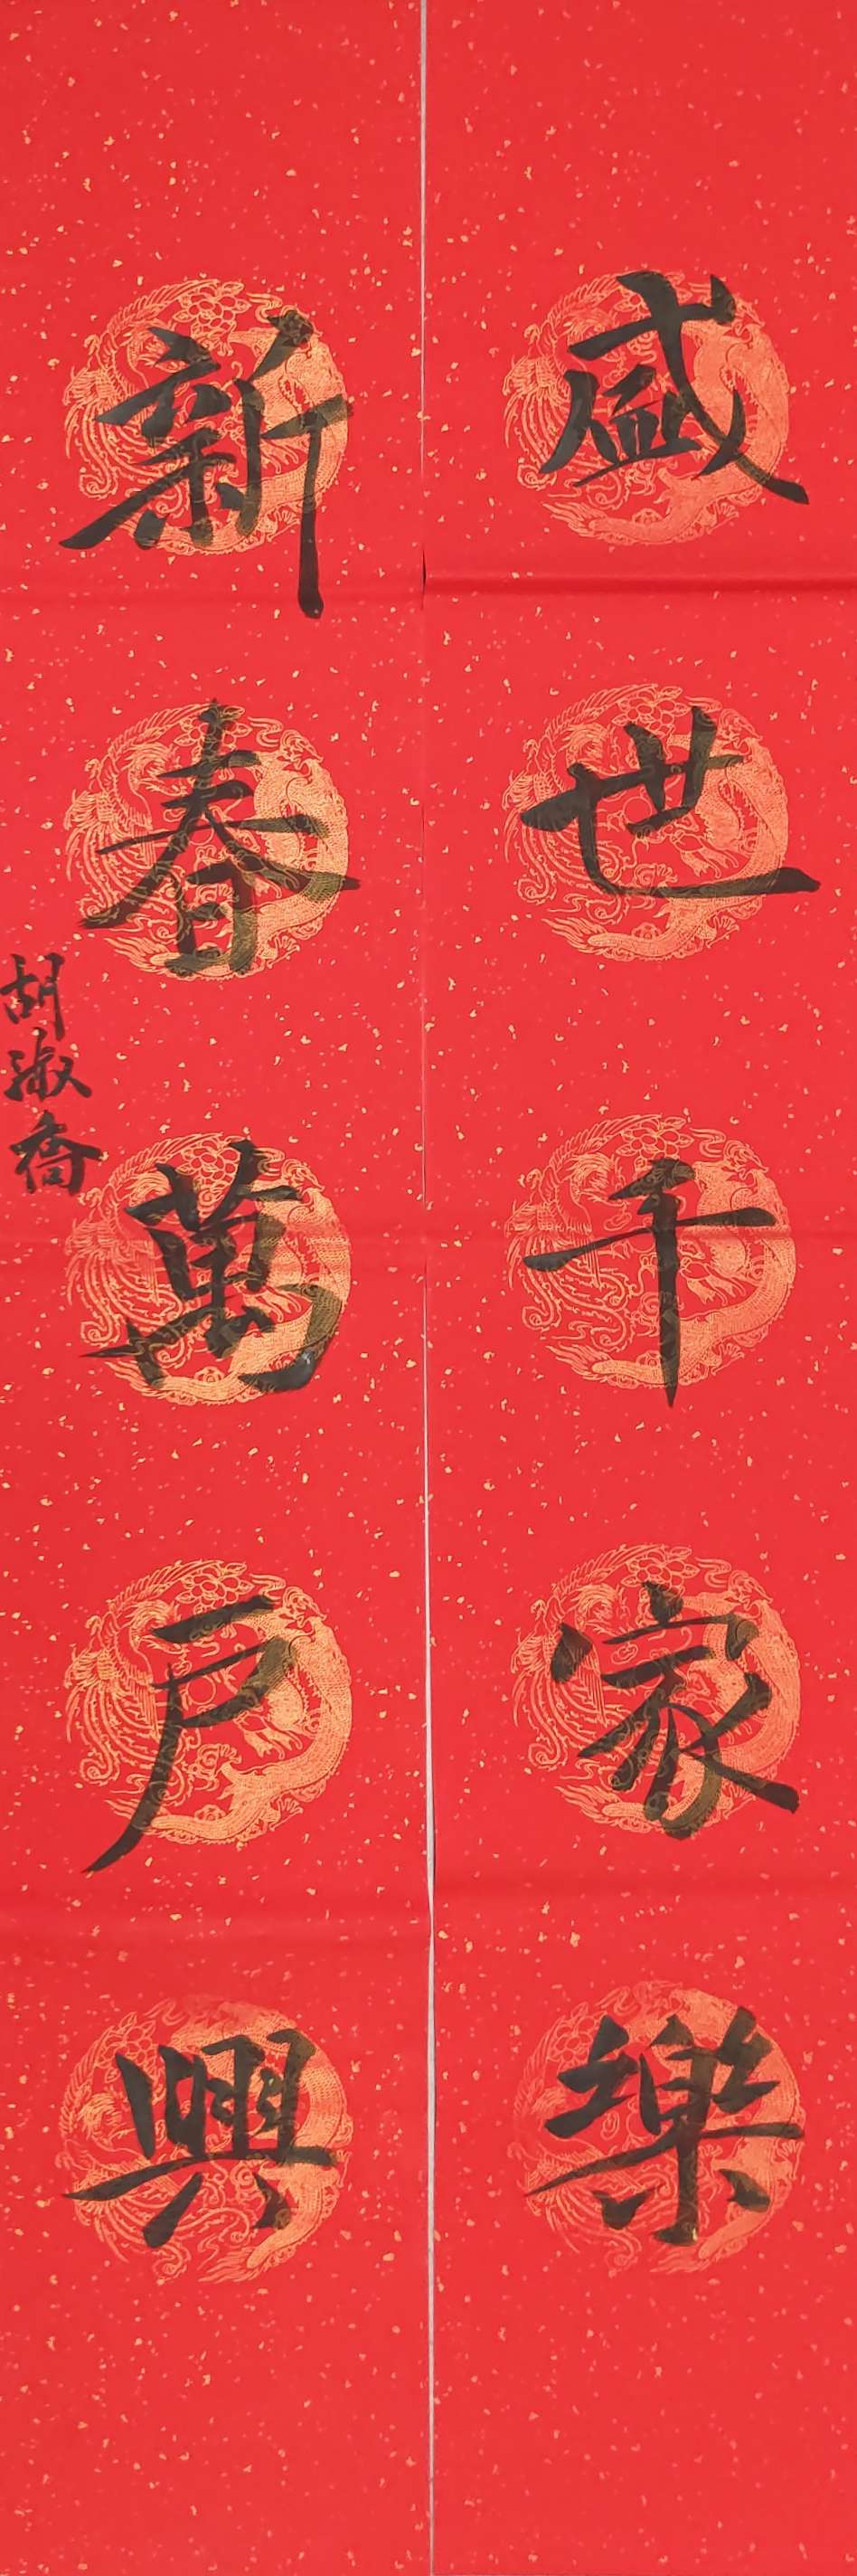 盛世千家樂
新春萬戶興
胡淑喬